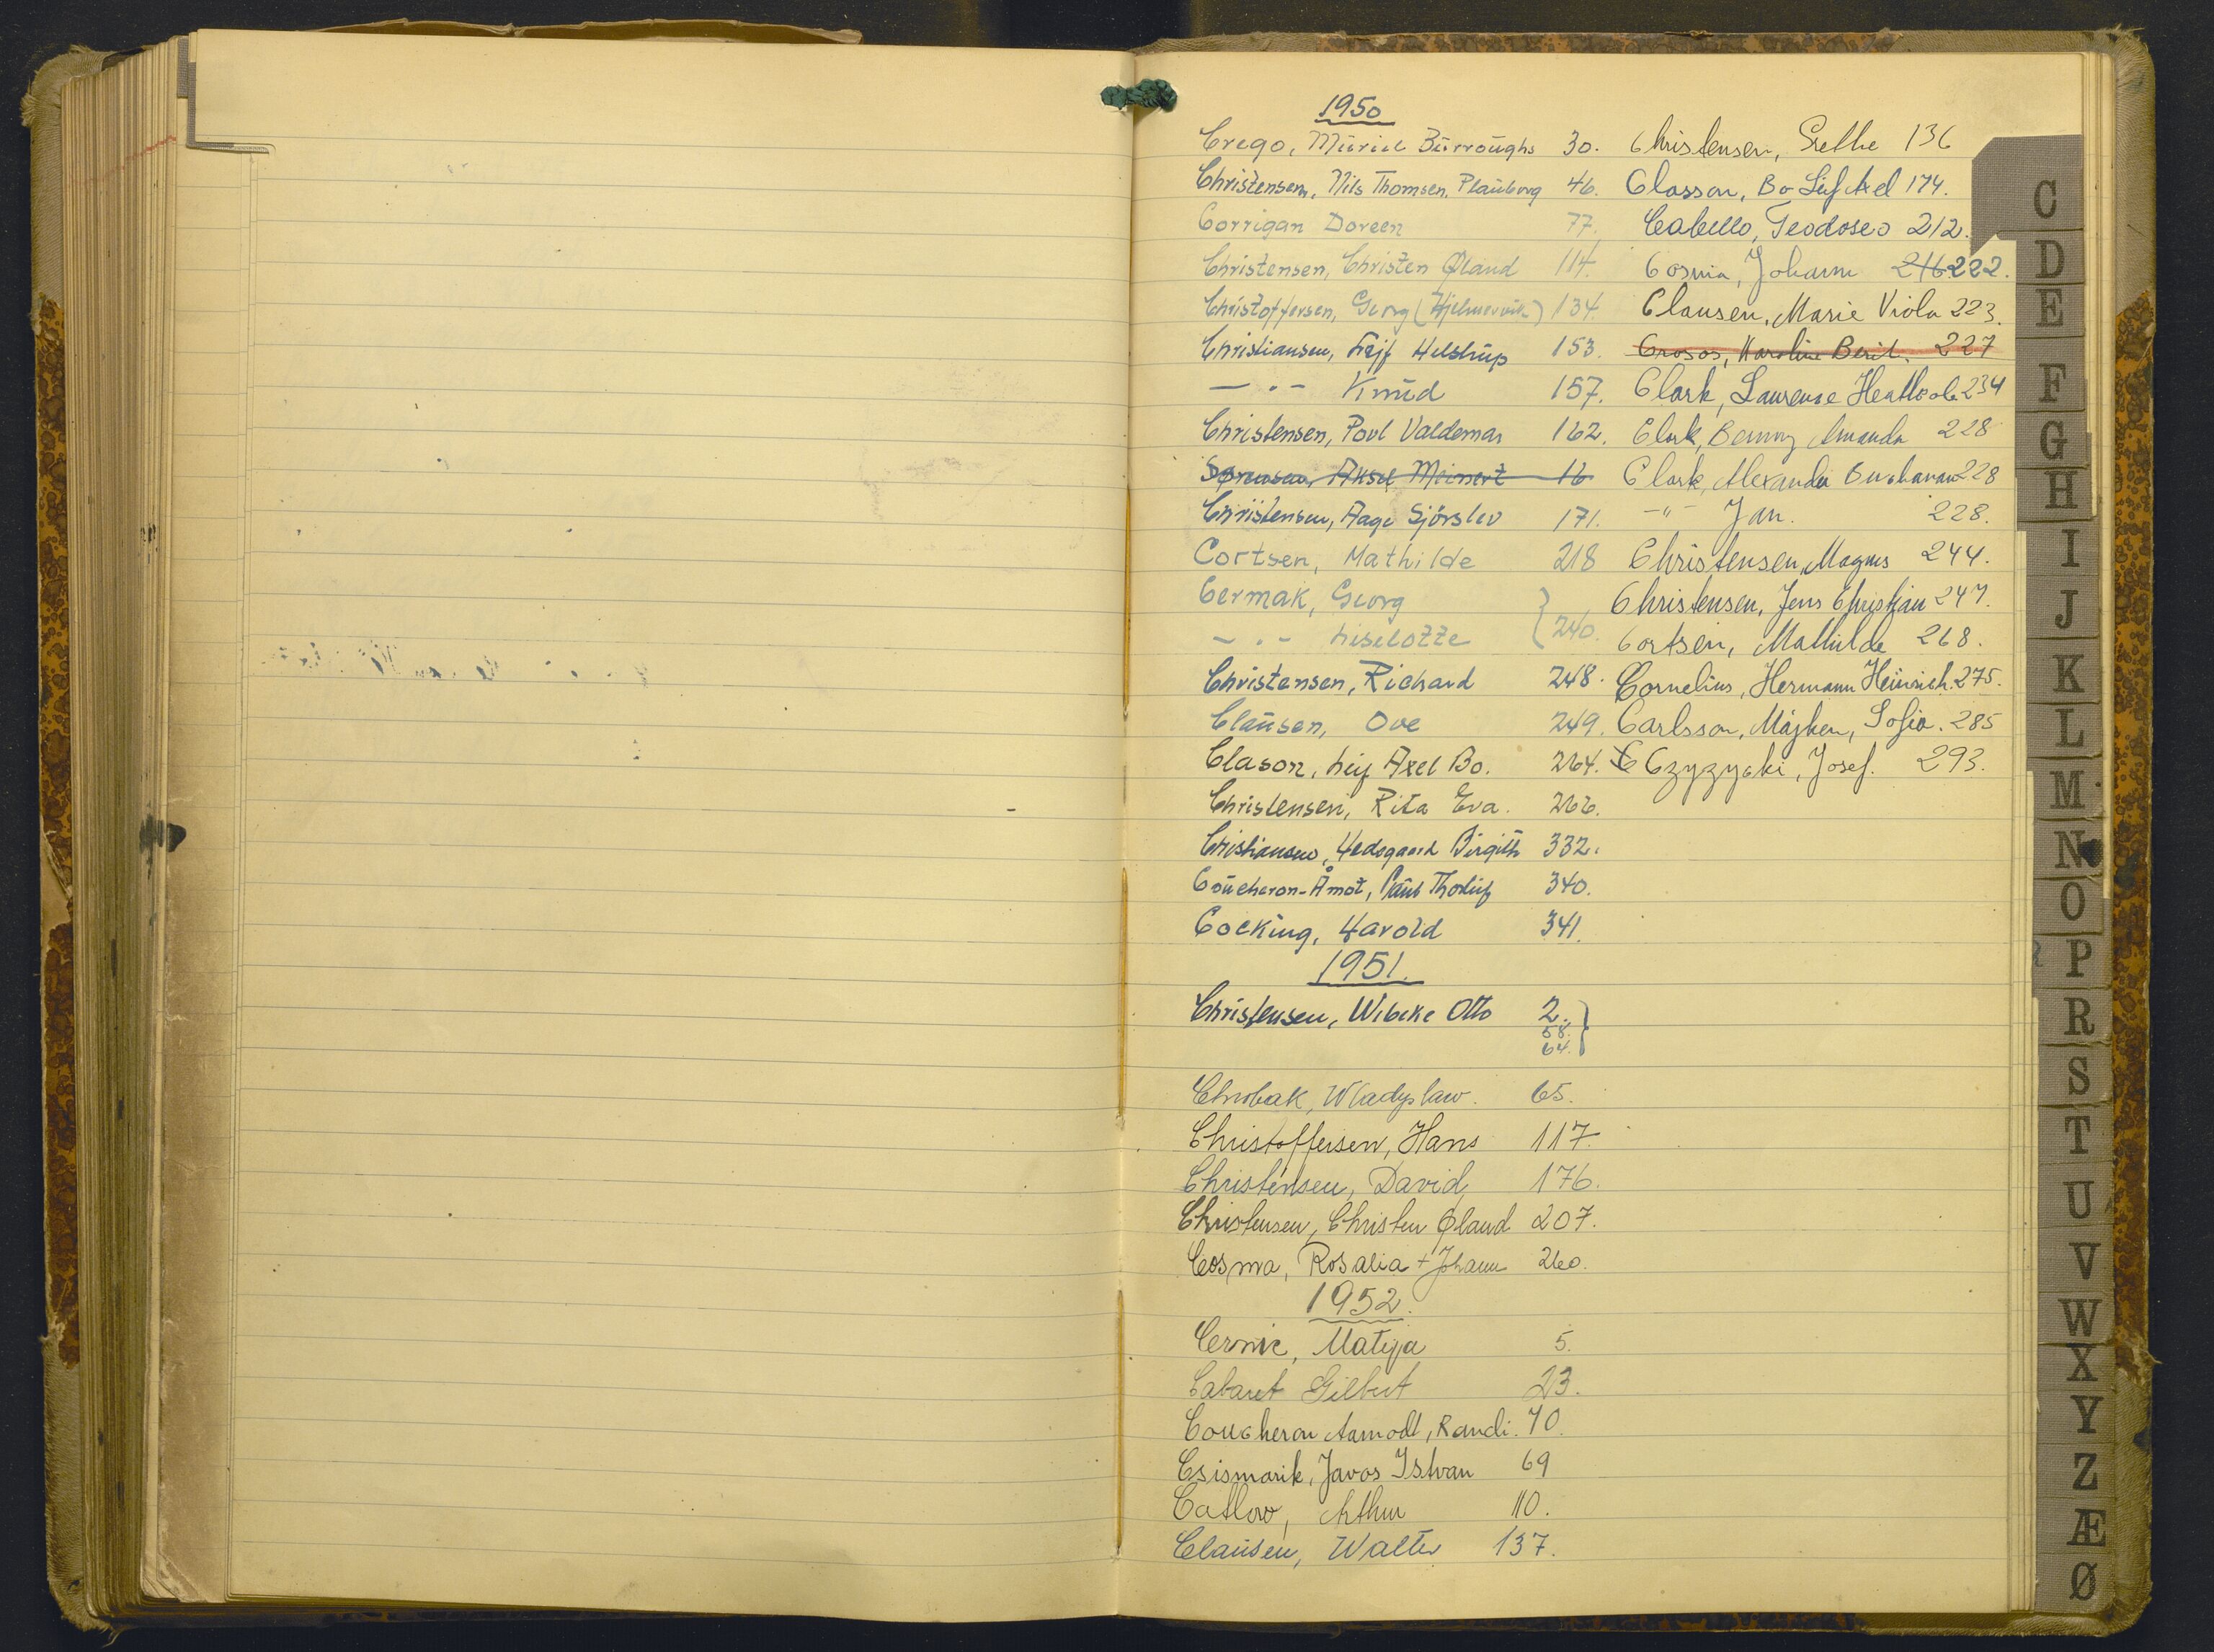 1950
Crego, Muriel Burroughs 30.
Christensen, Nils Thomsen, Plauborg 46.
Corrigan Doreen 77.
Christensen, Christen Øland 114.
Christoffersen, Georg (Hjelmervik) 134.
Christiansen, Leif Helstrup 153.
— · – Knud 157.
Christensen, Povl Valdemar 162.
Sørensen, Aksel Meinert 16
Christensen, Aage Sjörslev 171.
Cortsen, Mathilde 218
Cermak, Georg
– · – Liselotte } 240.
Christensen, Richard 248.
Clausen, Ove 249.
Clason, Leif Axel Bo. 264.
Christensen, Rita Eva. 266.
Christiansen, Hedegaard Birgith 332.
Coucheron-Åmot, Paul Thorleif 340.
Cocking, Harold 341.
1951.
Christensen, Wibeke Otto 2.
58.
64. }
Chrobak, Wladyslaw. 65.
Christoffersen, Hans 117
Christensen, David 176.
Christensen, Christen Øland 207.
Cosma, Rosalia + Johann 260.
1952.
Cernic, Matija 5.
Cabaret Gilbert 23.
Coucheron Aamodt, Randi. 70.
Csismarik, Javos Istvan 69
Catlow, Arthur 110.
Clausen, Walter 137.
Christensen, Grethe 136
Classon, Bo Leif Axel 174.
Cabello, Teodoseo 212.
Cosma, Johann 216 222.
Clausen, Marie Viola 223.
Crosos, Karoline Berit. 227
Clark, Laurense Heathcole 234
Clark, Benny Amanda 228
Clark, Alexander Buchanan 228
–„– Jan. 228.
Christensen, Magnus 244.
Christensen, Jens Christian 247.
Cortsen, Mathilde 268.
Cornelius, Hermann Heinrich. 275.
Carlsson, Majken, Sofia. 285
C Czyzycki, Josef. 293.
C
D
E
F
G
H
I
J
K
L
M
N
O
P
R
S
T
U
V
W
X
Y
Z
Æ
Ø